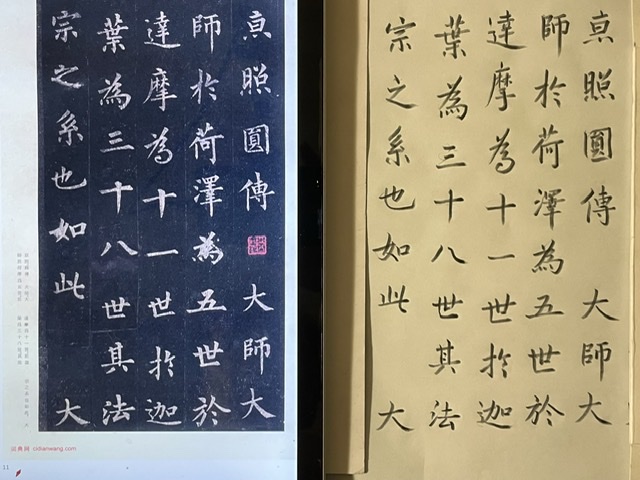 亰照圓傳 大師大
師於荷澤為五世於
達摩為十一世於迦
葉為三十八世其法
宗之系也如此 大
cidianwang.com
11
亰照圓傳 大師大
師於荷澤為五世於
達摩為十一世於迦
葉為三十八世其法
宗之系也如此 大